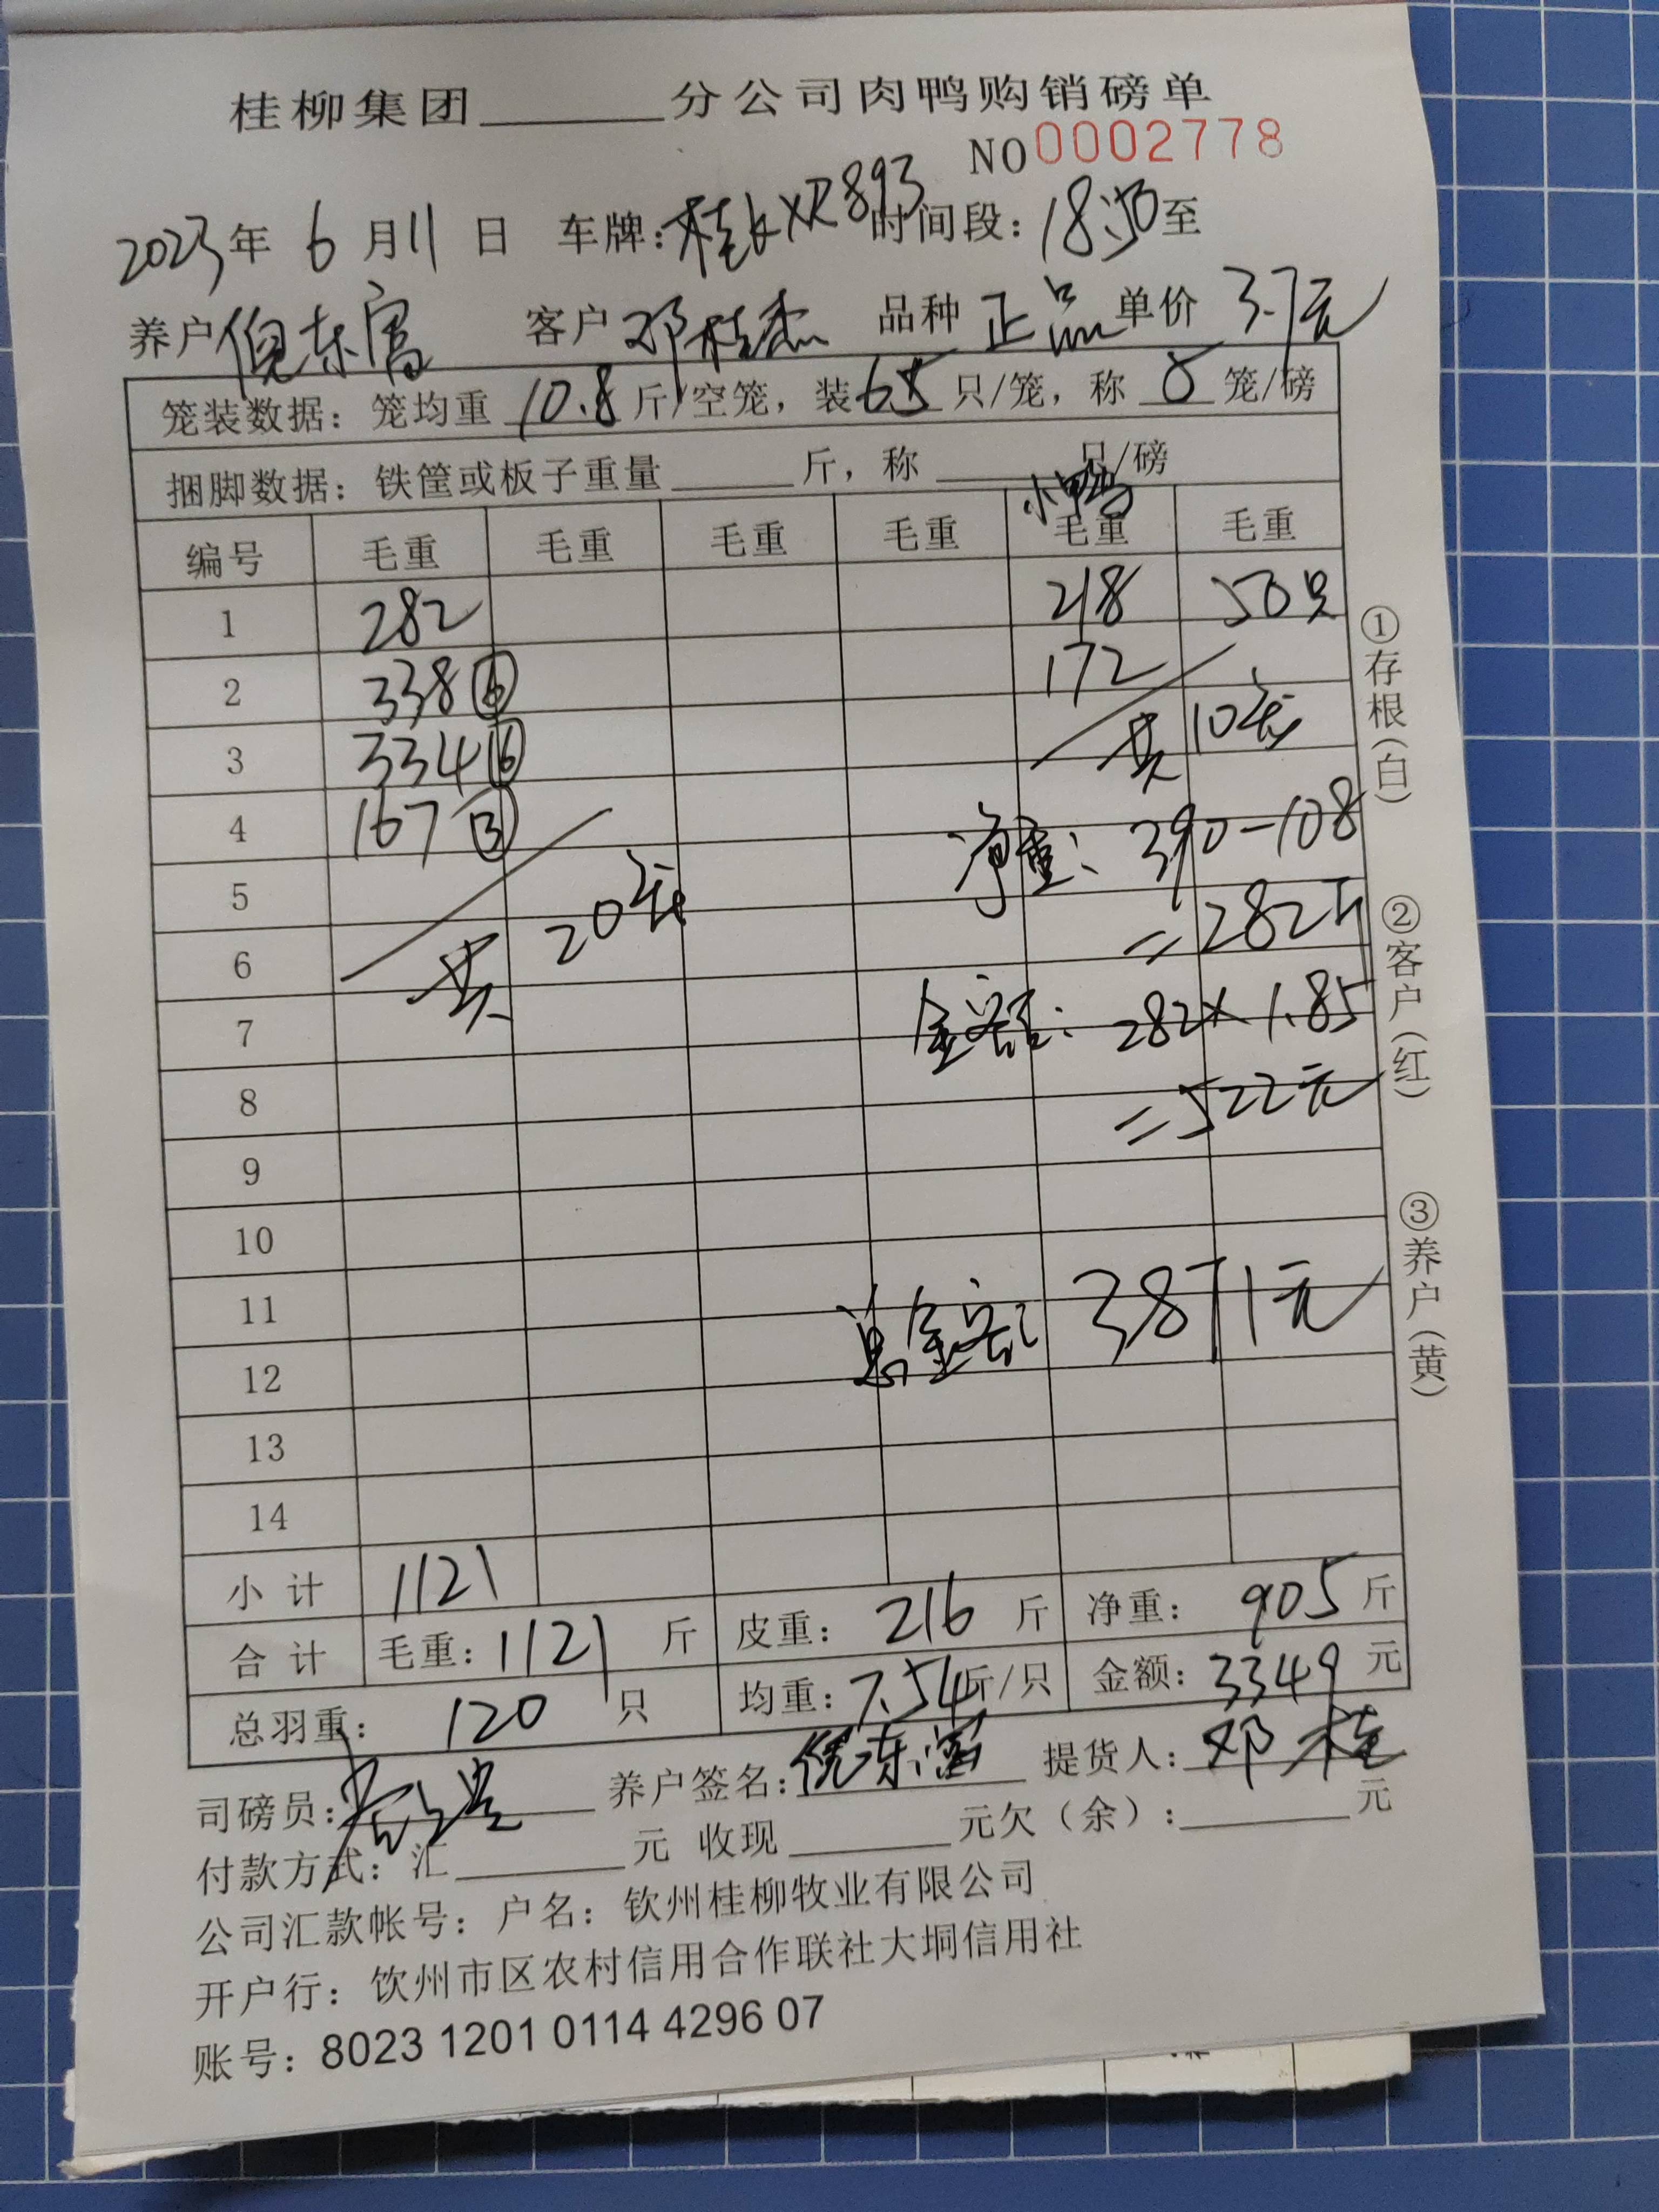 桂柳集团______分公司肉鸭购销磅单
NO 0002778
2023年 6月11日 车牌:桂KXR893 时间段:18:50至
养户 倪东富 客户 邓桂杰 品种 正品 单价 3.7元
笼装数据:笼均重 10.8 斤/空笼,装 6.5 只/笼,称 5 笼/磅
捆脚数据:铁筐或板子重量______斤,称______只/磅
小鸭
编号 毛重 毛重 毛重 毛重 毛重 毛重
1 282 218 50只
2 338 ⑥ 172
3 334 ⑥ 共10笼
4 167 ③ 净重:390-108
5 =282斤
6 共20笼
7 金额:282×1.85
8 =522元
9
10
11 总金额 3871元
12
13
14
小计 1121
合计 毛重:1121 斤 皮重:216 斤 净重:905 斤
总羽重:120 只 均重:7.54斤/只 金额:3349 元
司磅员: 养户签名:倪东富 提货人:邓桂
付款方式:汇______元 收现______元欠(余):______元
公司汇款帐号:户名:钦州桂柳牧业有限公司
开户行:钦州市区农村信用合作联社大垌信用社
账号:8023 1201 0114 4296 07
①存根(白)
②客户(红)
③养户(黄)